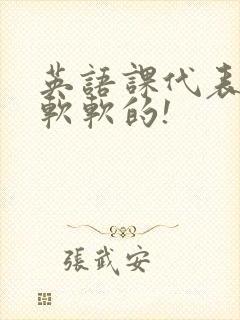 英語課代表
軟軟的!
張武安